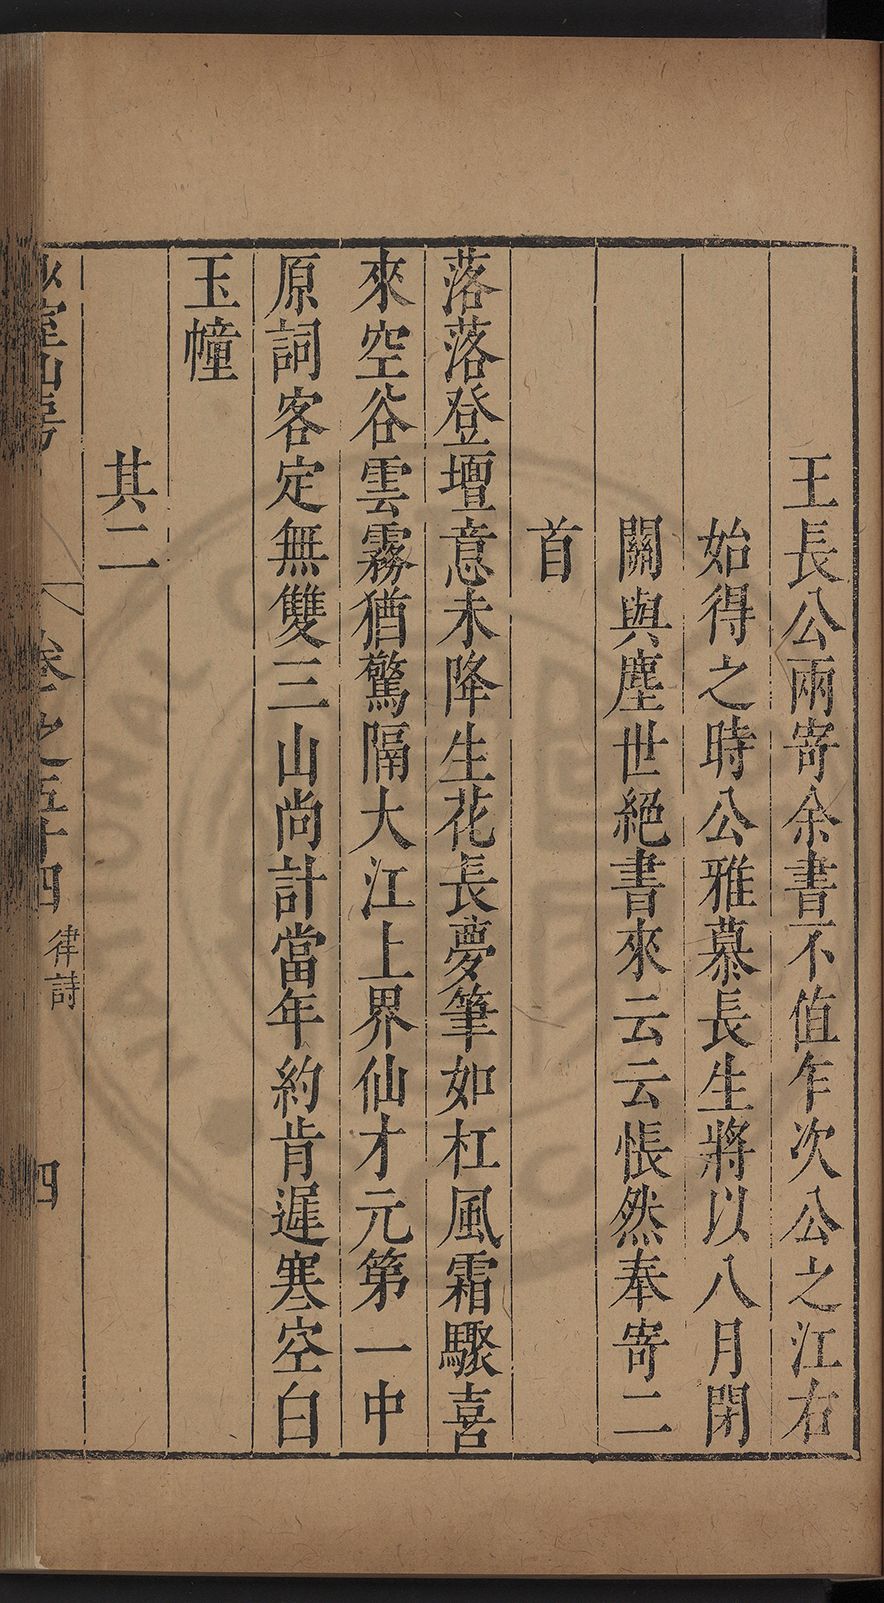 王長公兩寄余書不值乍次公之江右
始得之時公雅慕長生將以八月閉
關與塵世絕書來云云悵然奉寄二
首
落落登壇意未降生花長夢筆如杠風霜驟喜
來空谷雲霧猶驚隔大江上界仙才元第一中
原詞客定無雙三山尚計當年約肯遲寒空白
玉幢
其二
室山房
卷之五十四 律詩 四